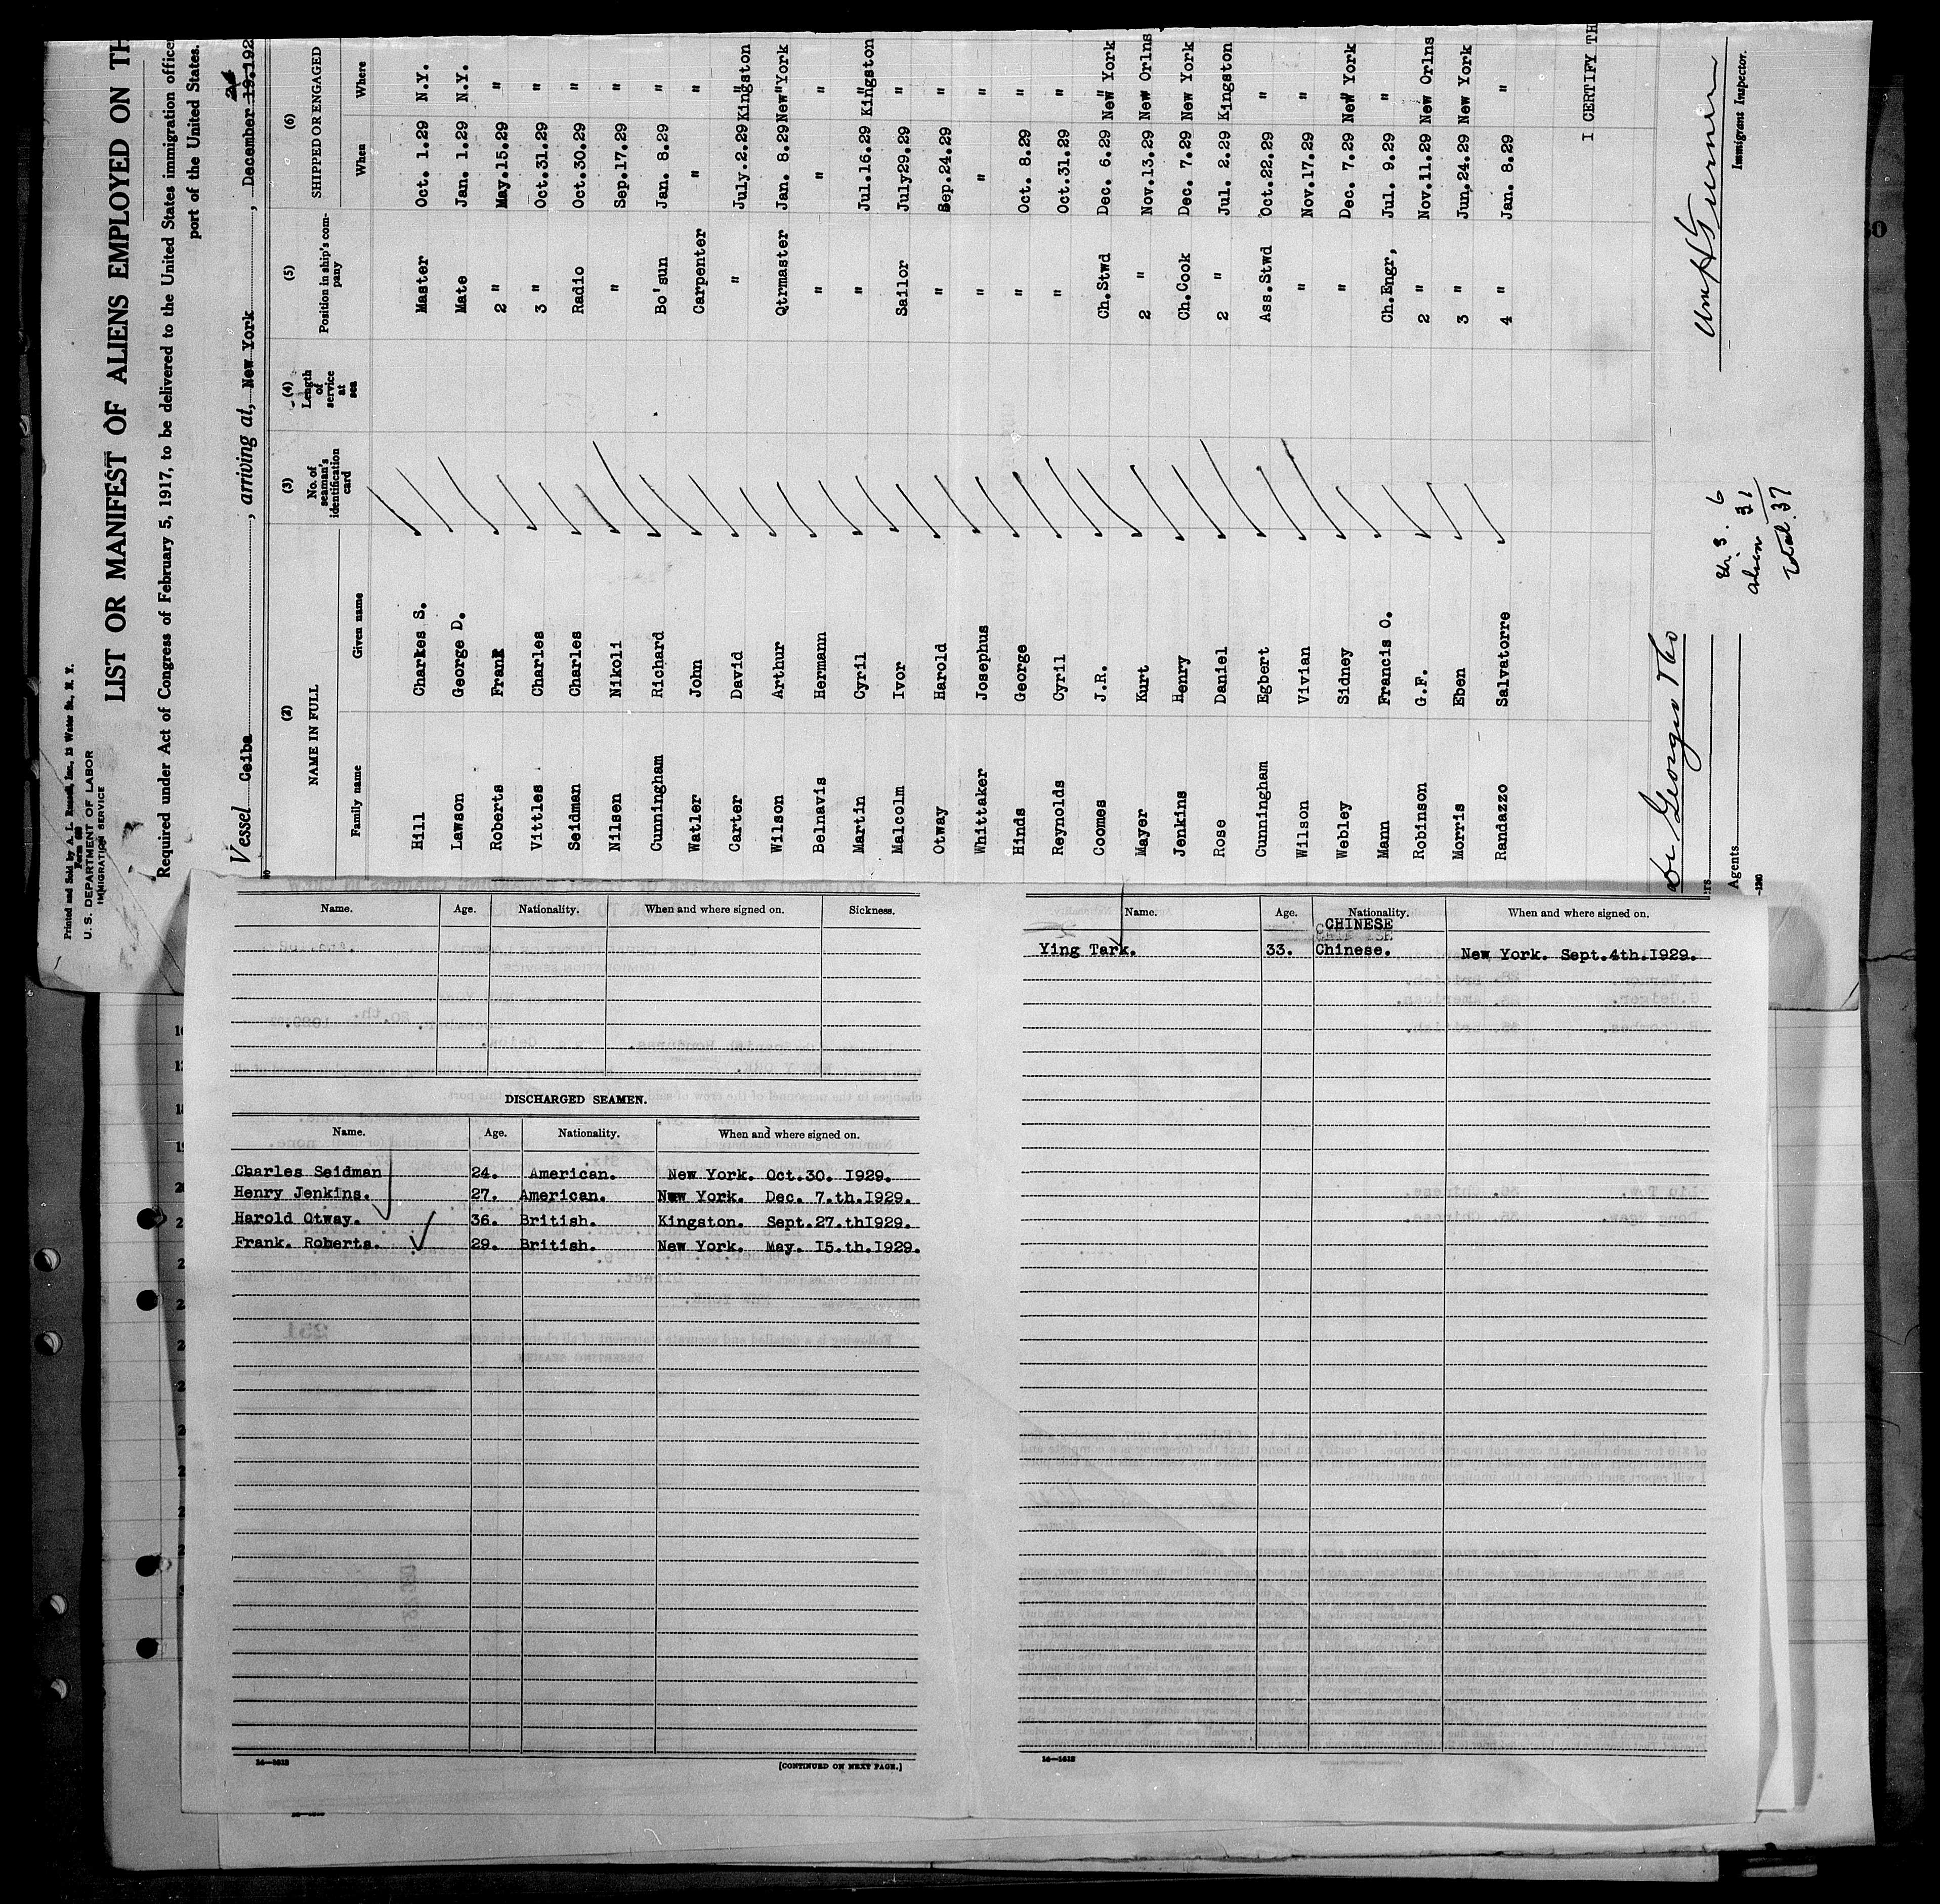 Printed and Sold by A. L. Russell, Inc., 13 Water St., N. Y.
Form 680
U. S. DEPARTMENT OF LABOR
IMMIGRATION SERVICE
LIST OR MANIFEST OF ALIENS EMPLOYED ON TH
Required under Act of Congress of February 5, 1917, to be delivered to the United States immigration office
port of the United States.
Vessel Ceiba, arriving at, New York, December 19.192
(2) (3) (4) (5) (6)
NAME IN FULL No. of seaman's identification card Length of service at sea Position in ship's company SHIPPED OR ENGAGED
Family name Given name When Where
Hill Charles S. Master Oct. 1.29 N.Y.
Lawson George D. Mate Jan. 1.29 N.Y.
Roberts Frank 2 " May.15.29 "
Vittles Charles 3 " Oct.31.29 "
Seidman Charles Radio Oct.30.29 "
Nilsen Nikoli " Sep.17.29 "
Cunningham Richard Bo'sun Jan. 8.29 "
Watler John Carpenter " "
Carter David " July.2.29 Kingston
Wilson Arthur Qtrmaster Jan. 8.29 New York
Belnavis Hermann " " "
Martin Cyril " Jul.16.29 Kingston
Malcolm Ivor Sailor July29.29 "
Otway Harold " Sep.24.29 "
Whittaker Josephus " " "
Hinds George " Oct. 8.29 "
Reynolds Cyril " Oct.31.29 "
Coomes J.R. Ch.Stwd Dec. 6.29 New York
Mayer Kurt 2 " Nov.13.29 New Orlns
Jenkins Henry Ch.Cook Dec. 7.29 New York
Rose Daniel 2 " Jul. 2.29 Kingston
Cunningham Egbert Ass.Stwd Oct.22.29 "
Wilson Vivian " Nov.17.29 "
Webley Sidney " Dec. 7.29 New York
Mann Francis O. Ch.Engr, Jul. 9.29 "
Robinson G.F. 2 " Nov.11.29 New Orlns
Morris Eben 3 " Jun.24.29 New York
Randazzo Salvatorre 4 " Jan. 8.29 "
I CERTIFY TH
Immigrant Inspector.
U. S. 6
alien 31
total 37
Agents
Name. Age. Nationality. When and where signed on. Sickness.
DISCHARGED SEAMEN.
Name. Age. Nationality. When and where signed on.
Charles Seidman 24. American. New York. Oct.30. I929.
Henry Jenkins. 27. American. New York. Dec. 7.th.I929.
Harold Otway. 36. British. Kingston. Sept.27.thI929.
Frank. Roberts. 29. British. New York. May. I5.th.I929.
14—1612
[CONTINUED ON NEXT PAGE.]
Name. Age. Nationality. When and where signed on.
CHINESE
Ying Tark. 33. Chinese. New York. Sept.4th.I929.
14—1612